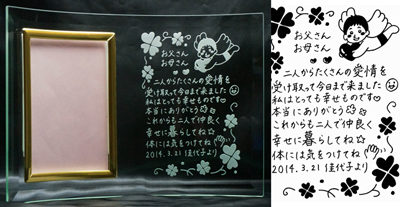 お父さん
お母さん
二人からたくさんの愛情を
受け取って今日まで来ました
私はとっても幸せものです
本当にありがとう
これからも二人で仲良く
幸せに暮らしてね
体には気をつけてね
2014.3.21 佳代子より
お父さん
お母さん
二人からたくさんの愛情を
受け取って今日まで来ました
私はとっても幸せものです
本当にありがとう
これからも二人で仲良く
幸せに暮らしてね
体には気をつけてね
2014.3.21 佳代子より